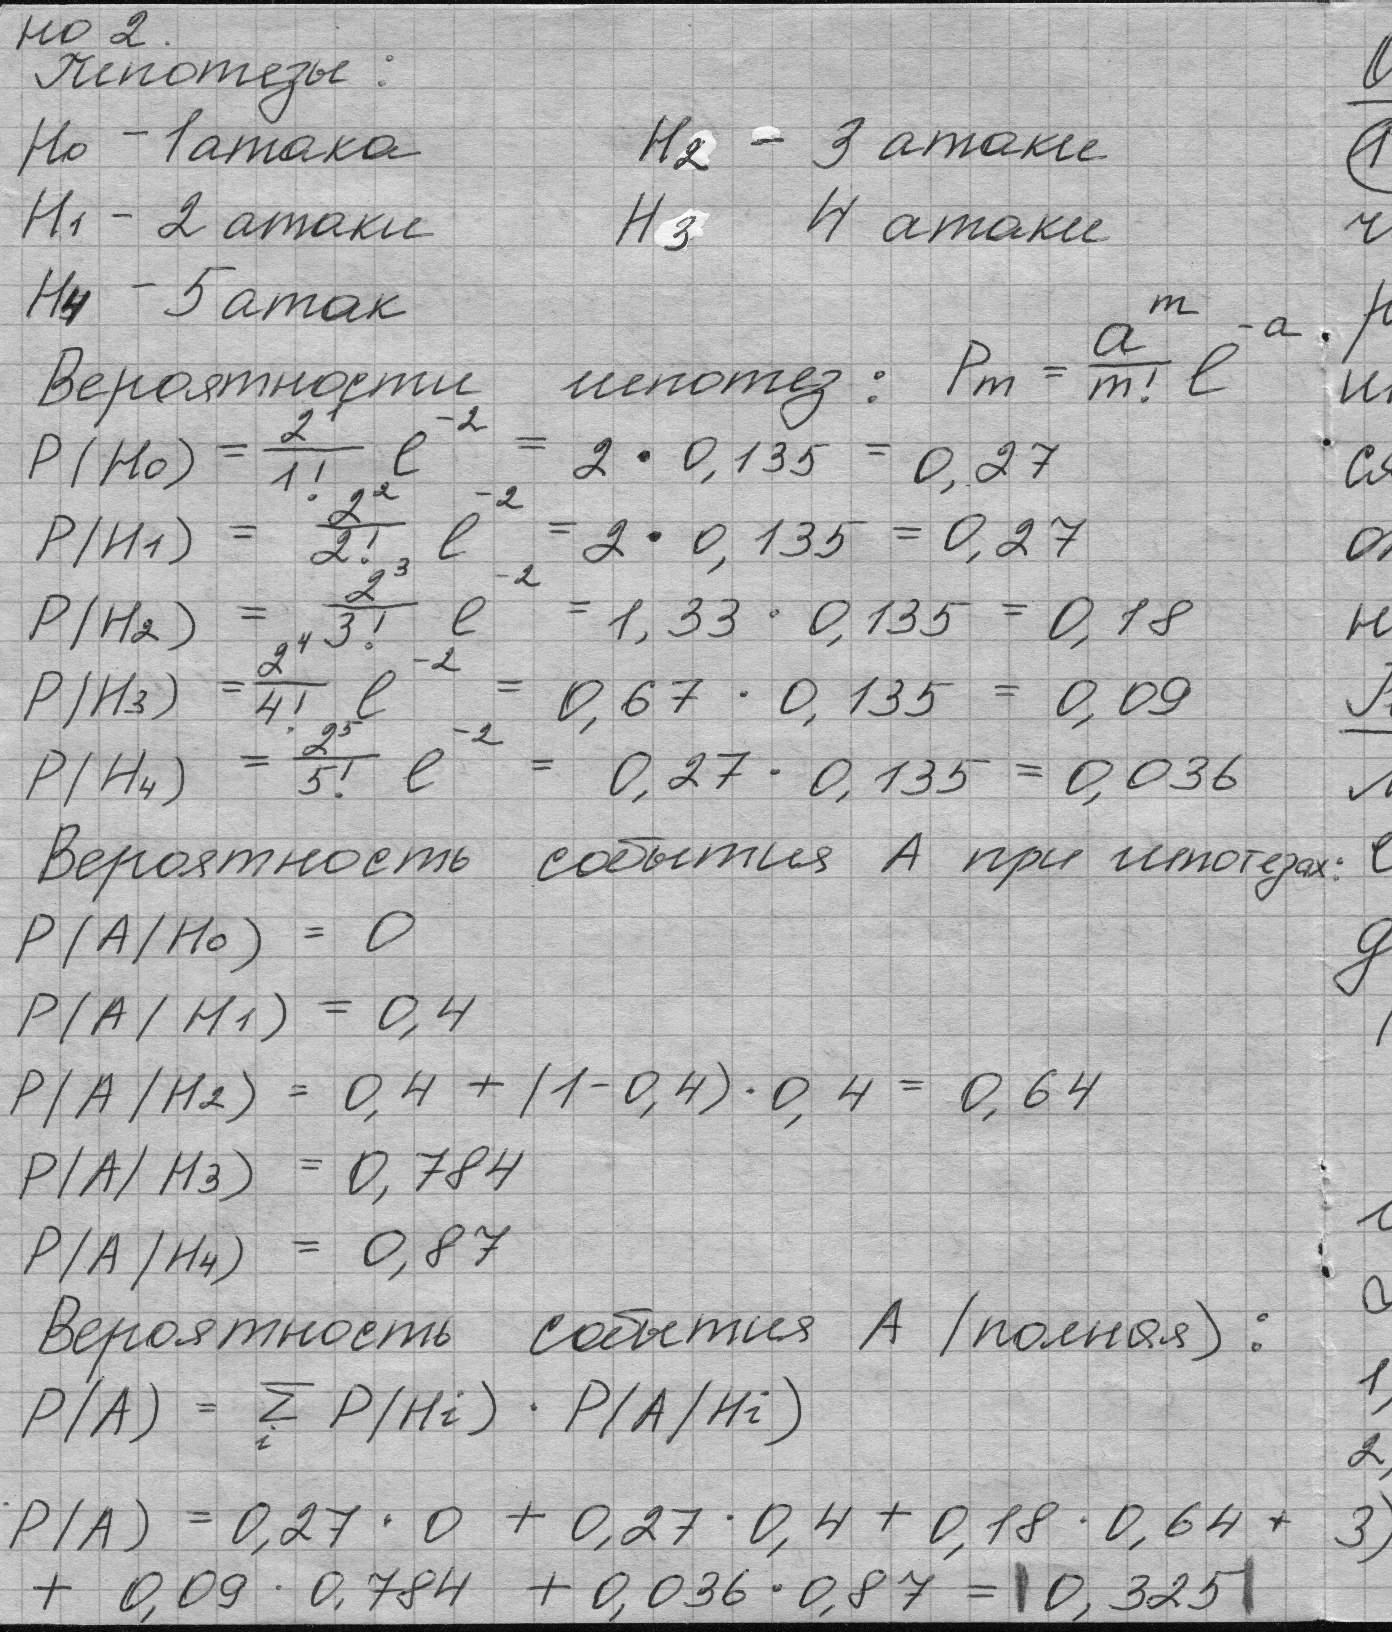 но 2.
Гипотезы:
H0 - 1 атака H2 - 3 атаки
H1 - 2 атаки H3 4 атаки
H4 - 5 атак
Вероятности гипотез: Pm = a^m/m! e^-a.
P(H0) = 2^1/1! e^-2 = 2 · 0,135 = 0,27
P(H1) = 2^2/2! e^-2 = 2 · 0,135 = 0,27
P(H2) = 2^3/3! e^-2 = 1,33 · 0,135 = 0,18
P(H3) = 2^4/4! e^-2 = 0,67 · 0,135 = 0,09
P(H4) = 2^5/5! e^-2 = 0,27 · 0,135 = 0,036
Вероятность события A при гипотезах:
P(A/H0) = 0
P(A/H1) = 0,4
P(A/H2) = 0,4 + (1-0,4)·0,4 = 0,64
P(A/H3) = 0,784
P(A/H4) = 0,87
Вероятность события A (полная):
P(A) = Σi P(Hi) · P(A/Hi)
P(A) = 0,27 · 0 + 0,27 · 0,4 + 0,18 · 0,64 +
+ 0,09 · 0,784 + 0,036 · 0,87 = |0,325|
1,
2,
3)